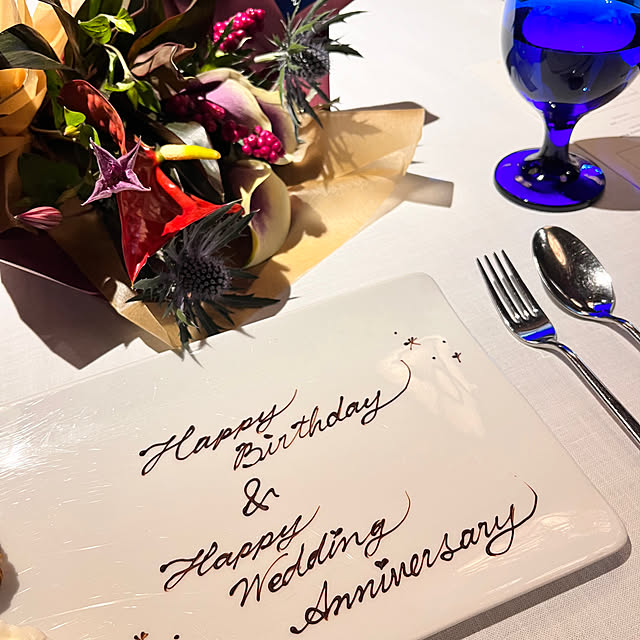 Happy
Birthday
&
Happy
Wedding
Anniversary